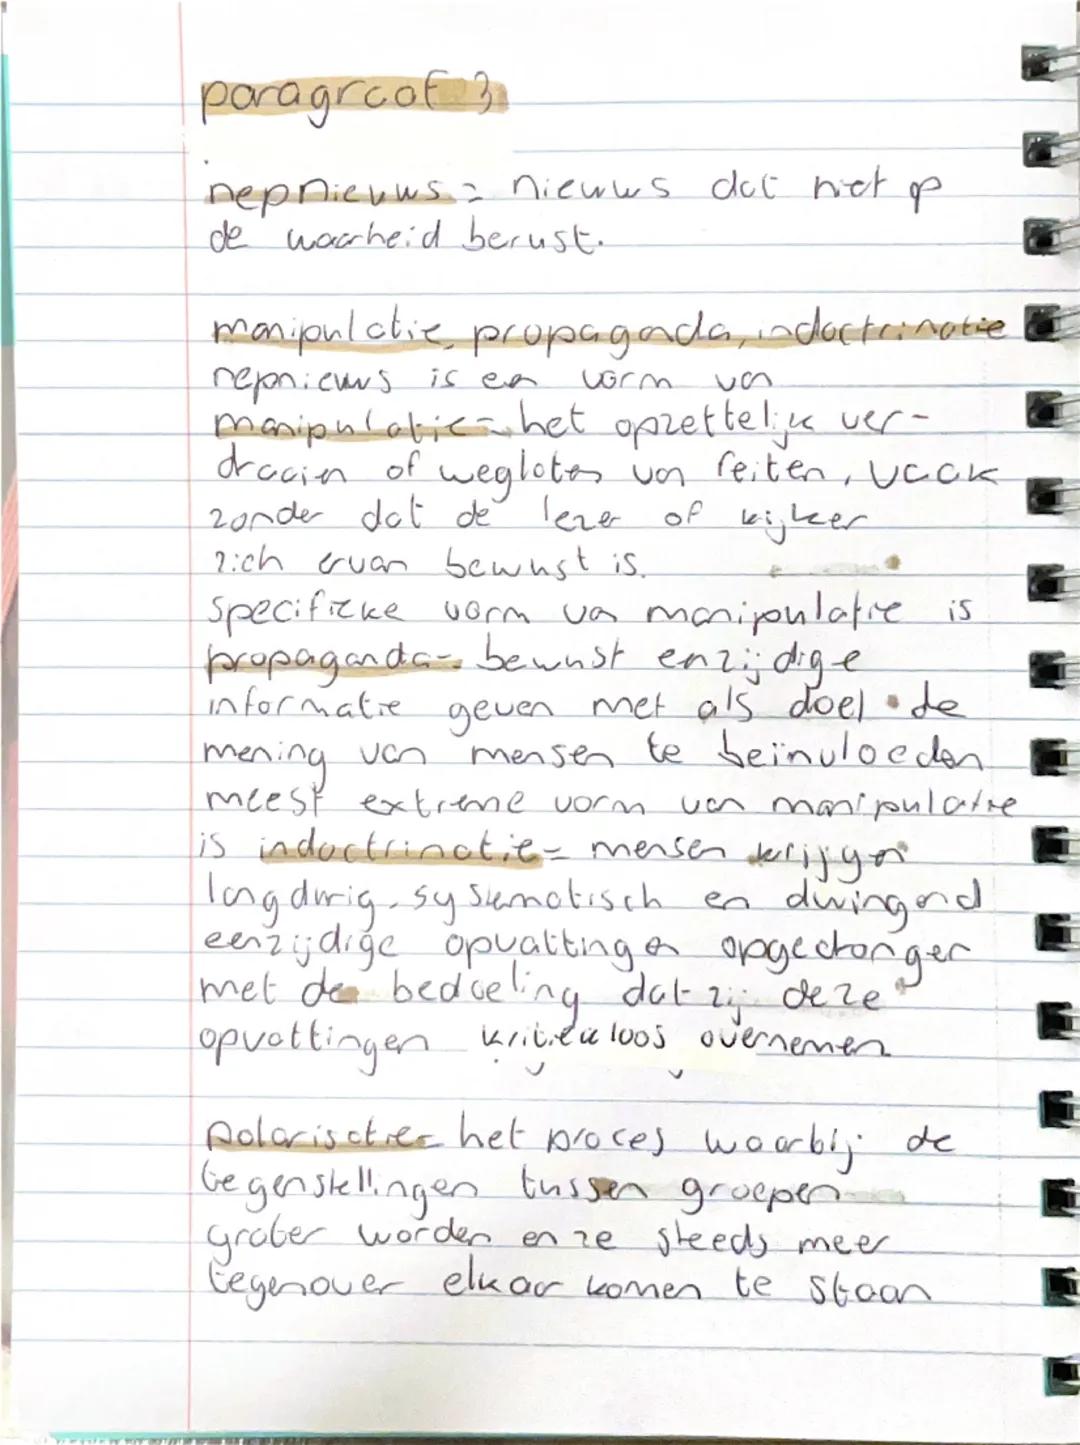 paragraaf 3
nepnieuws = nieuws dat niet op
de waarheid berust.
manipulatie, propaganda, indoctrinatie
nepnieuws is een vorm van
manipulatie = het opzettelijk ver-
draaien of weglaten van feiten, vaak
zonder dat de lezer of kijker
zich ervan bewust is.
specifieke vorm van manipulatie is
propaganda = bewust enzijdige
informatie geven met als doel de
mening van mensen te beïnvloeden
meest extreme vorm van manipulatie
is indoctrinatie = mensen krijgen
langdurig, systematisch en dwingend
eenzijdige opvattingen opgedrongen
met de bedoeling dat zij deze
opvattingen kritiekloos overnemen
polarisatie = het proces waarbij de
tegenstellingen tussen groepen
groter worden en ze steeds meer
tegenover elkaar komen te staan